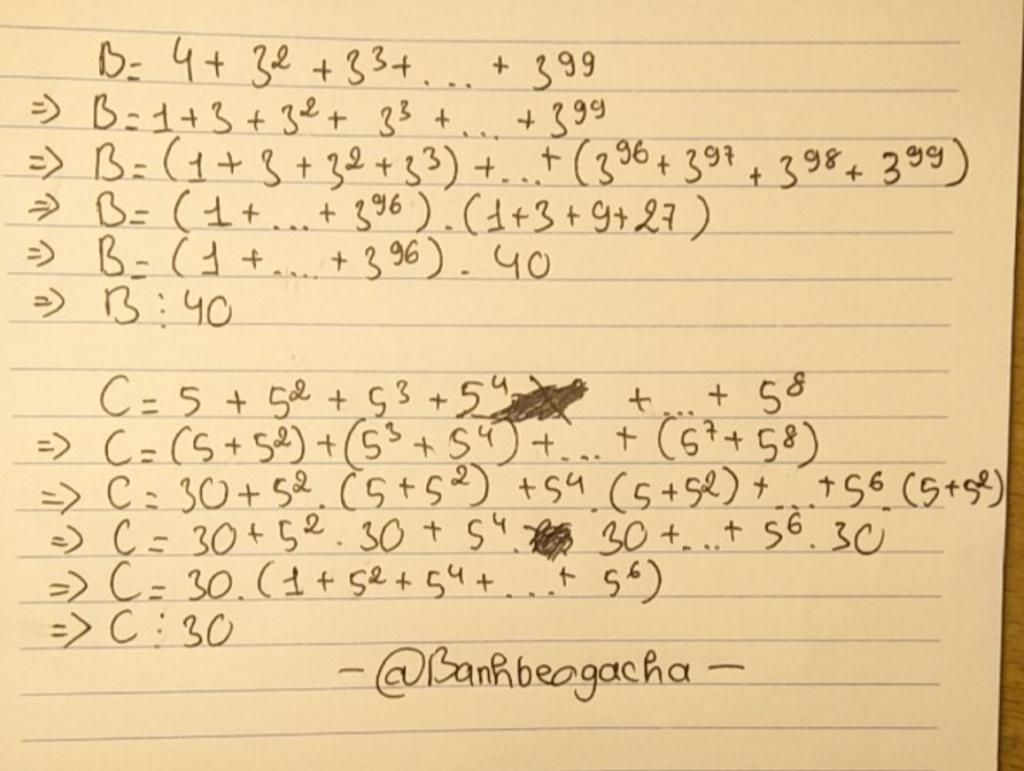 B = 4 + 3² + 3³ + ... + 3⁹⁹
=> B = 1 + 3 + 3² + 3³ + ... + 3⁹⁹
=> B = (1 + 3 + 3² + 3³) + ... + (3⁹⁶ + 3⁹⁷ + 3⁹⁸ + 3⁹⁹)
=> B = (1 + ... + 3⁹⁶) . (1 + 3 + 9 + 27)
=> B = (1 + .... + 3⁹⁶) . 40
=> B ⋮ 40
C = 5 + 5² + 5³ + 5⁴ + ... + 5⁸
=> C = (5 + 5²) + (5³ + 5⁴) + ... + (5⁷ + 5⁸)
=> C = 30 + 5² . (5 + 5²) + 5⁴ . (5 + 5²) + ... + 5⁶ . (5 + 5²)
=> C = 30 + 5² . 30 + 5⁴ . 30 + ... + 5⁶ . 30
=> C = 30 . (1 + 5² + 5⁴ + ... + 5⁶)
=> C ⋮ 30
- @Banhbeogacha -